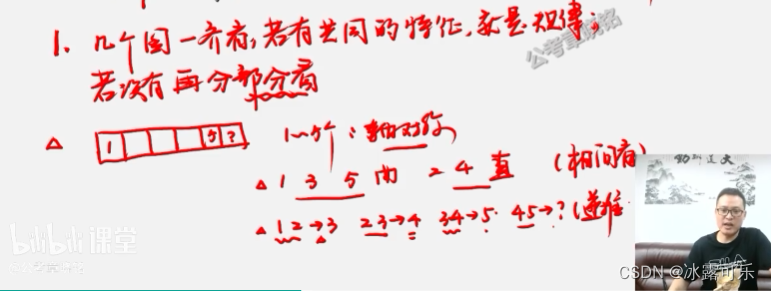 1. 几个图一齐看,若有共同的特征,就是规律;
若没有再分部分看
公考章晓铭
△ 1 5 ? 1~5个:轴对称
△ 1 3 5 曲 2 4 直 (相间看)
△ 12→3 23→4 34→5 45→? (递推
bilibili课堂
CSDN @冰露可乐